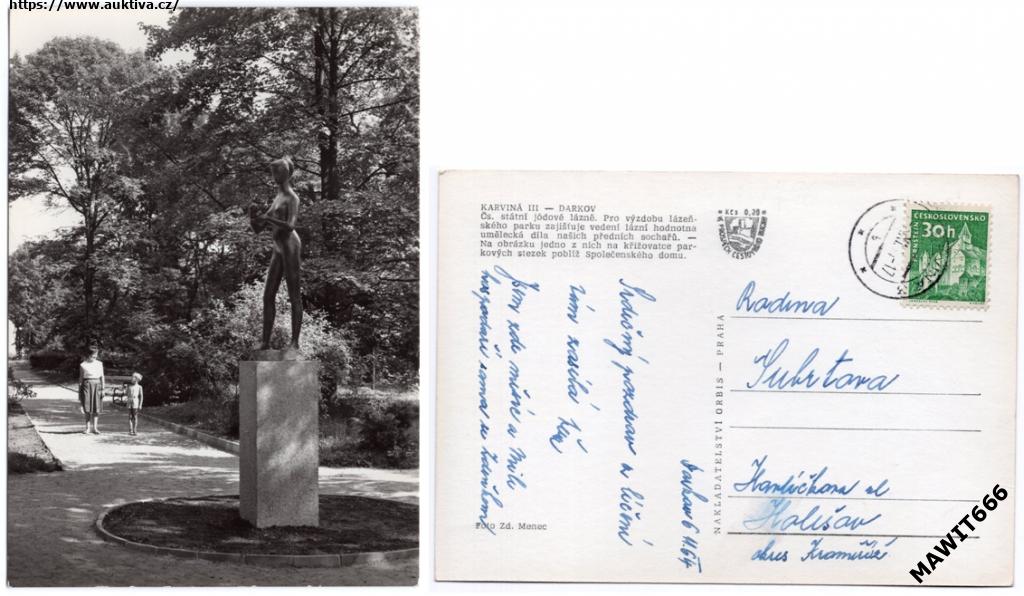 https://www.auktiva.cz/
KARVINÁ III — DARKOV
Čs. státní jódové lázně. Pro výzdobu lázeň-
ského parku zajišťuje vedení lázní hodnotna
umělecká díla našich předních sochařů. —
Na obrázku jedno z nich na křižovatce par-
kových stezek poblíž Společenského domu.
Kčs 0,30
ČESKOSLOVENSKO
30h
Srdečný pozdrav z léčení
Vám zasílá
Jsem zde měsíc a Mili
hospodaří sama se Zdeňkem
Darkov 6
NAKLADATELSTVÍ ORBIS — PRAHA
Rodina
Šubrtova
Havlíčkova ul
Holišov
okres
Foto Zd. Menec
MAWIT666